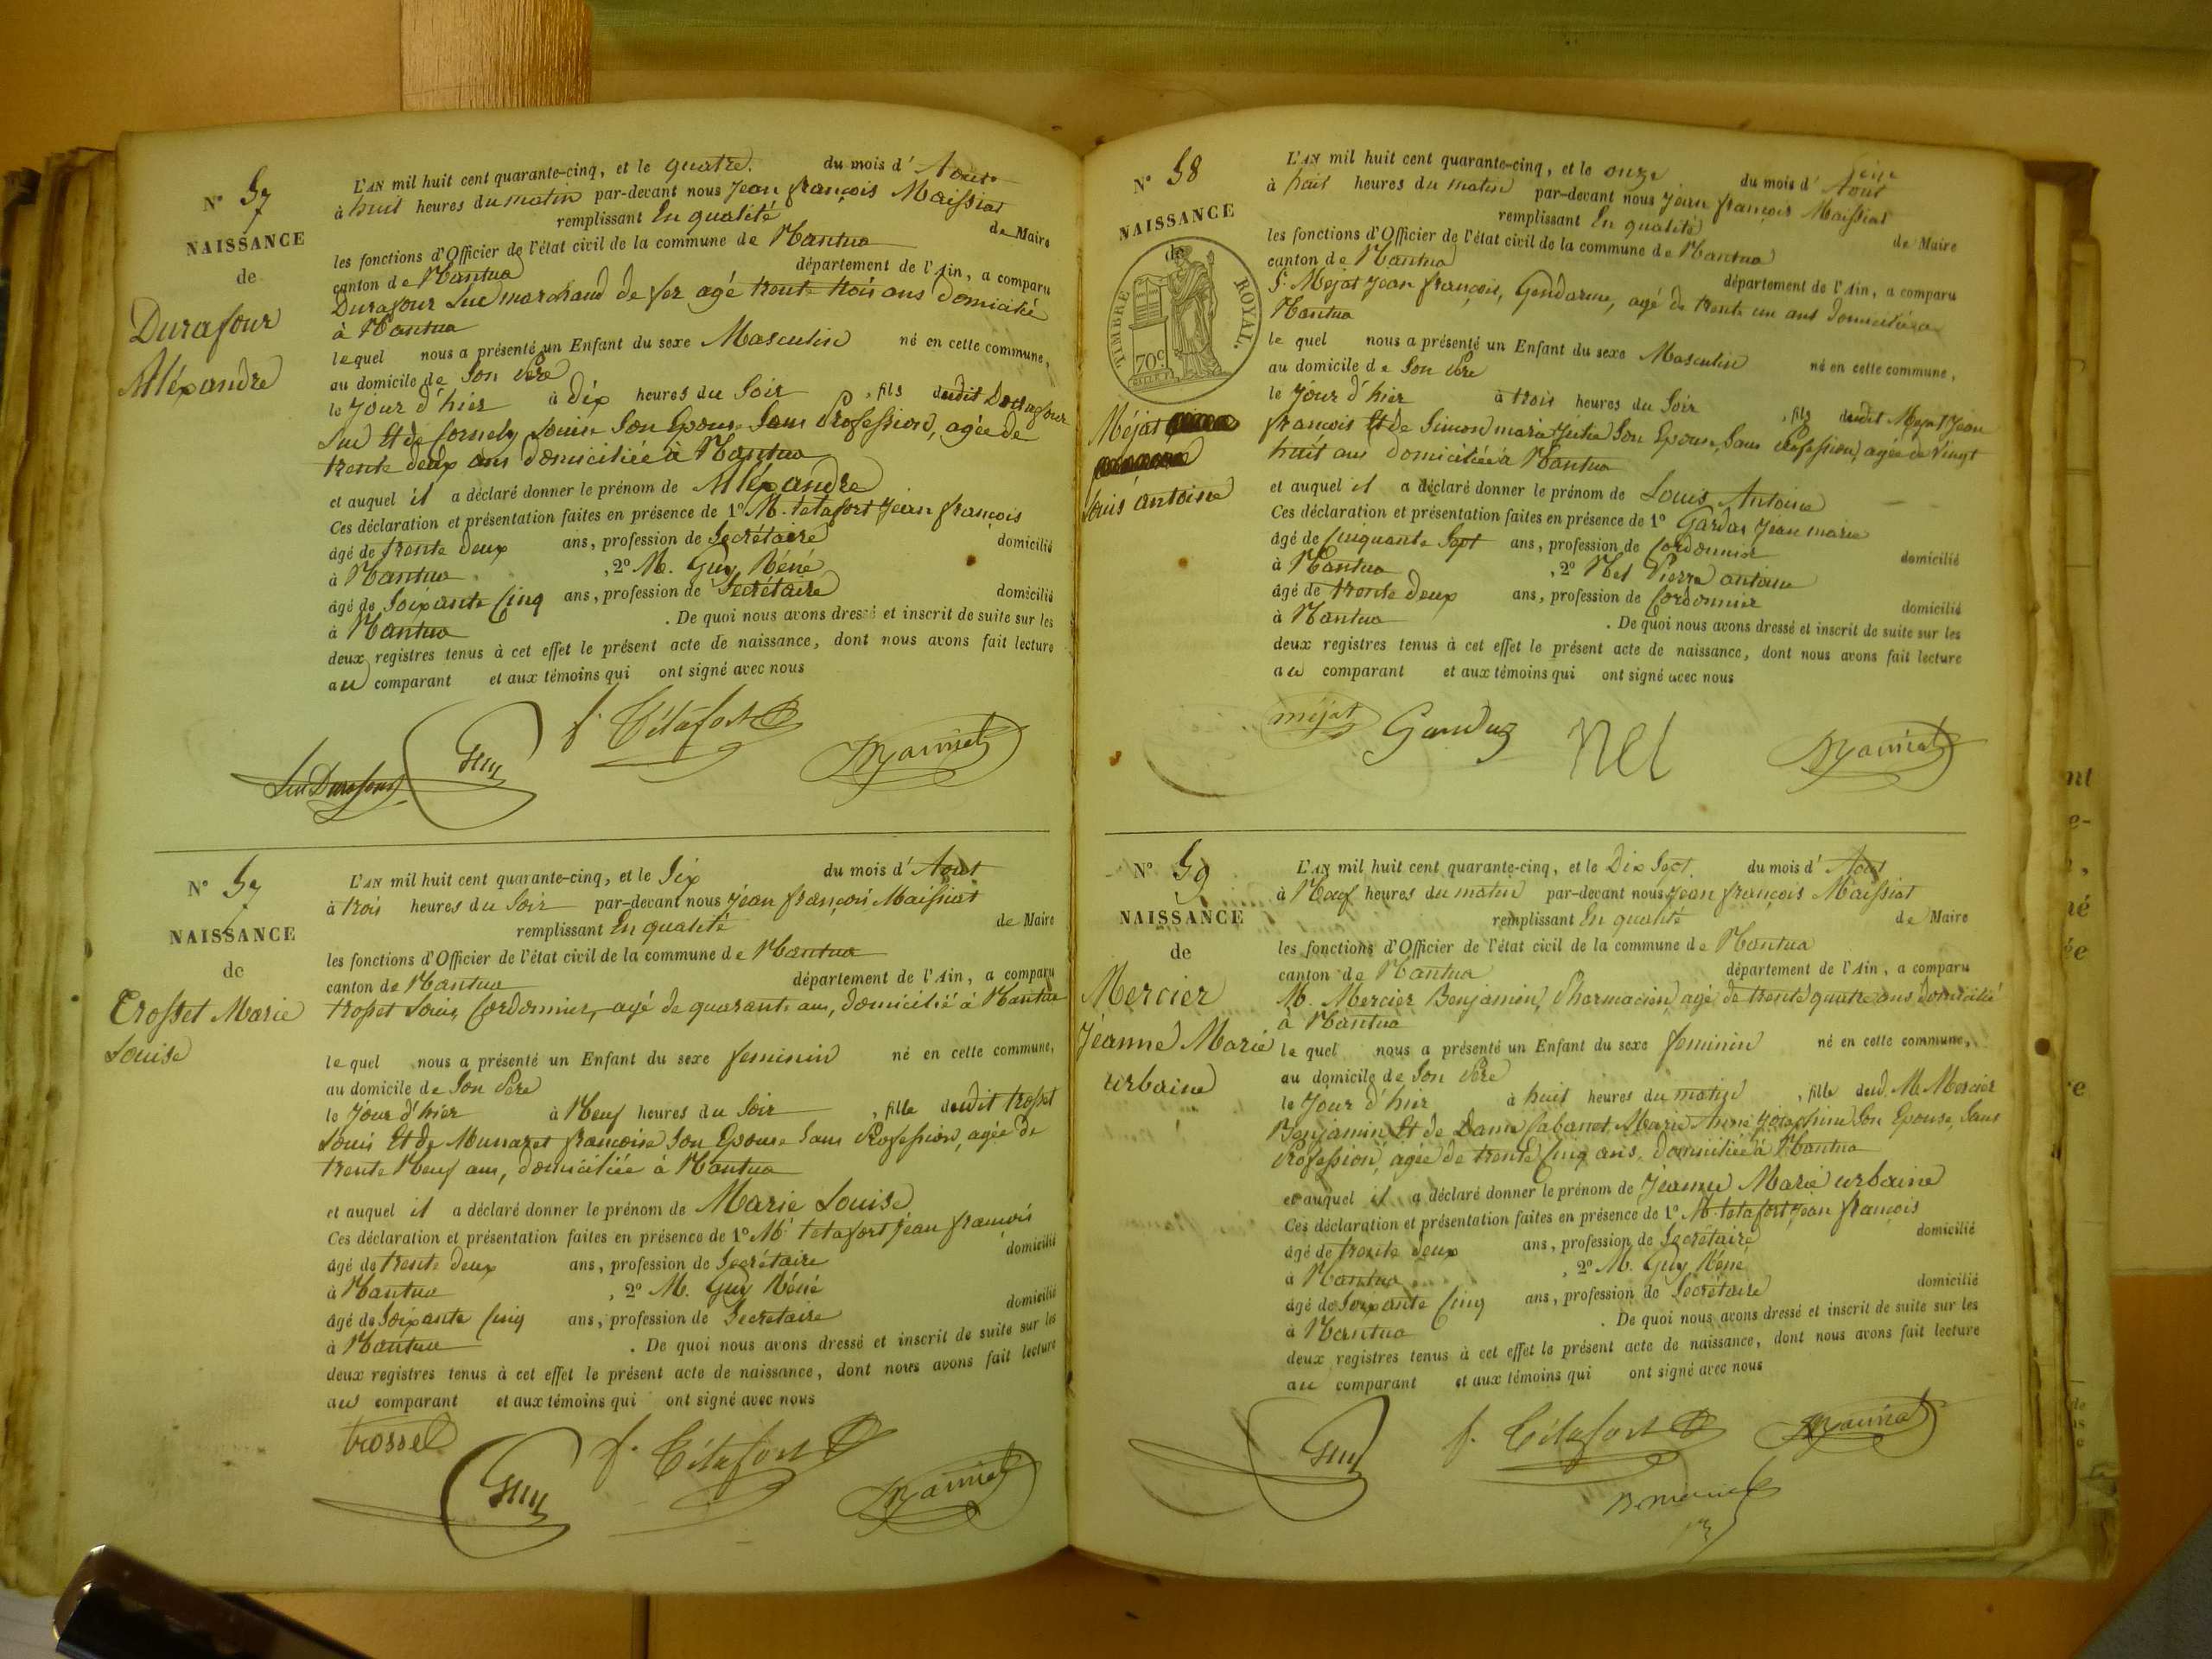 N° 57
NAISSANCE
de
Durafour
Aléxandre
L'AN mil huit cent quarante-cinq, et le quatre. du mois d' Aout
à huit heures du matin par-devant nous Jean françois Maissiat
remplissant En qualité de Maire
les fonctions d'Officier de l'état civil de la commune de Nantua
canton de Nantua département de l'Ain, a comparu
Durafour Luc marchand de fer agé trente trois ans domicilié
à Nantua
lequel nous a présenté un Enfant du sexe Masculin né en cette commune,
au domicile de Son Père
le Jour d'hier à dix heures du Soir , fils dudit Durafour
Luc Et de Cornely Louise Son Epouse Sans Profession, agée de
trente deux ans domiciliée à Nantua
et auquel il a déclaré donner le prénom de Aléxandre
Ces déclaration et présentation faites en présence de 1° M. tetafort Jean françois
âgé de trente deux ans, profession de Secrétaire domicilié
à Nantua , 2° M. Guy Réné
âgé de Soixante Cinq ans, profession de Secrétaire domicilié
à Nantua . De quoi nous avons dressé et inscrit de suite sur les
deux registres tenus à cet effet le présent acte de naissance, dont nous avons fait lecture
au comparant et aux témoins qui ont signé avec nous
Luc Durafour Guy f. Tétafort Maissiat
N° 57
NAISSANCE
de
Trosset Marie
Louise
L'AN mil huit cent quarante-cinq, et le Six du mois d' Aout
à trois heures du Soir par-devant nous Jéan françois Maissiat
remplissant En qualité de Maire
les fonctions d'Officier de l'état civil de la commune de Nantua
canton de Nantua département de l'Ain, a comparu
trosset Louis, Cordonnier, agé de quarante ans, domicilié à Nantua
lequel nous a présenté un Enfant du sexe feminin né en cette commune,
au domicile de Son Père
le Jour d'hier à Neuf heures du Soir , fille dudit trosset
Louis Et de Munaret françoise Son Epouse Sans Profession, agée de
trente Neuf ans, domiciliée à Nantua
et auquel il a déclaré donner le prénom de Marie Louise
Ces déclaration et présentation faites en présence de 1° M. tetafort Jéan françois
âgé de trente deux ans, profession de Secrétaire domicilié
à Nantua , 2° M. Guy Réné
âgé de Soixante Cinq ans, profession de Secretaire domicilié
à Nantua . De quoi nous avons dressé et inscrit de suite sur les
deux registres tenus à cet effet le présent acte de naissance, dont nous avons fait lecture
au comparant et aux témoins qui ont signé avec nous
trosset Guy f. Tétafort Maissiat
N° 58
NAISSANCE
de
TIMBRE ROYAL.
70c
Méjat
Louis antoine
L'AN mil huit cent quarante-cinq, et le onze du mois d' Aout
à huit heures du matin par-devant nous Jean françois Maissiat
remplissant En qualité de Maire
les fonctions d'Officier de l'état civil de la commune de Nantua
canton de Nantua département de l'Ain, a comparu
S. Mejat Jean françois, Gendarme, agé de trente un ans domicilié a
Nantua
lequel nous a présenté un Enfant du sexe Masculin né en cette commune,
au domicile de Son Père
le Jour d'hier à trois heures du Soir , fils dudit Mejat Jean
françois Et de Simon marie Julie Son Epouse, Sans Profession, agée de Vingt
huit ans domiciliée à Nantua
et auquel il a déclaré donner le prénom de Louis Antoine
Ces déclaration et présentation faites en présence de 1° Gardaz Jean marie
âgé de Cinquante Sept ans, profession de Cordonnier domicilié
à Nantua , 2° Nel Pierre antoine
âgé de trente deux ans, profession de Cordonnier domicilié
à Nantua . De quoi nous avons dressé et inscrit de suite sur les
deux registres tenus à cet effet le présent acte de naissance, dont nous avons fait lecture
au comparant et aux témoins qui ont signé avec nous
méjat Gardaz Nel Maissiat
N° 59
NAISSANCE
de
Mercier
Jéanne Marie
urbaine
L'AN mil huit cent quarante-cinq, et le Dix Sept. du mois d' Aout
à Neuf heures du matin par-devant nous Jean françois Maissiat
remplissant En qualité de Maire
les fonctions d'Officier de l'état civil de la commune de Nantua
canton de Nantua département de l'Ain, a comparu
M. Mercier Benjamin, Pharmacien, agé de trente quatre ans domicilié
à Nantua
lequel nous a présenté un Enfant du sexe feminin né en cette commune,
au domicile de Son Père
le Jour d'hier à huit heures du matin , fille dud. M. Mercier
Benjamin Et de Dame Cabanet Marie Anne Joachine Son Epouse, Sans
Profession, agée de trente Cinq ans, domiciliée à Nantua
et auquel il a déclaré donner le prénom de Jéanne Marie urbaine
Ces déclaration et présentation faites en présence de 1° M. tetafort Jean françois
âgé de trente deux ans, profession de Secrétaire domicilié
à Nantua , 2° M. Guy Réné
âgé de Soixante Cinq ans, profession de Secrétaire domicilié
à Nantua . De quoi nous avons dressé et inscrit de suite sur les
deux registres tenus à cet effet le présent acte de naissance, dont nous avons fait lecture
au comparant et aux témoins qui ont signé avec nous
Guy f. Tétafort Maissiat
B. Mercier